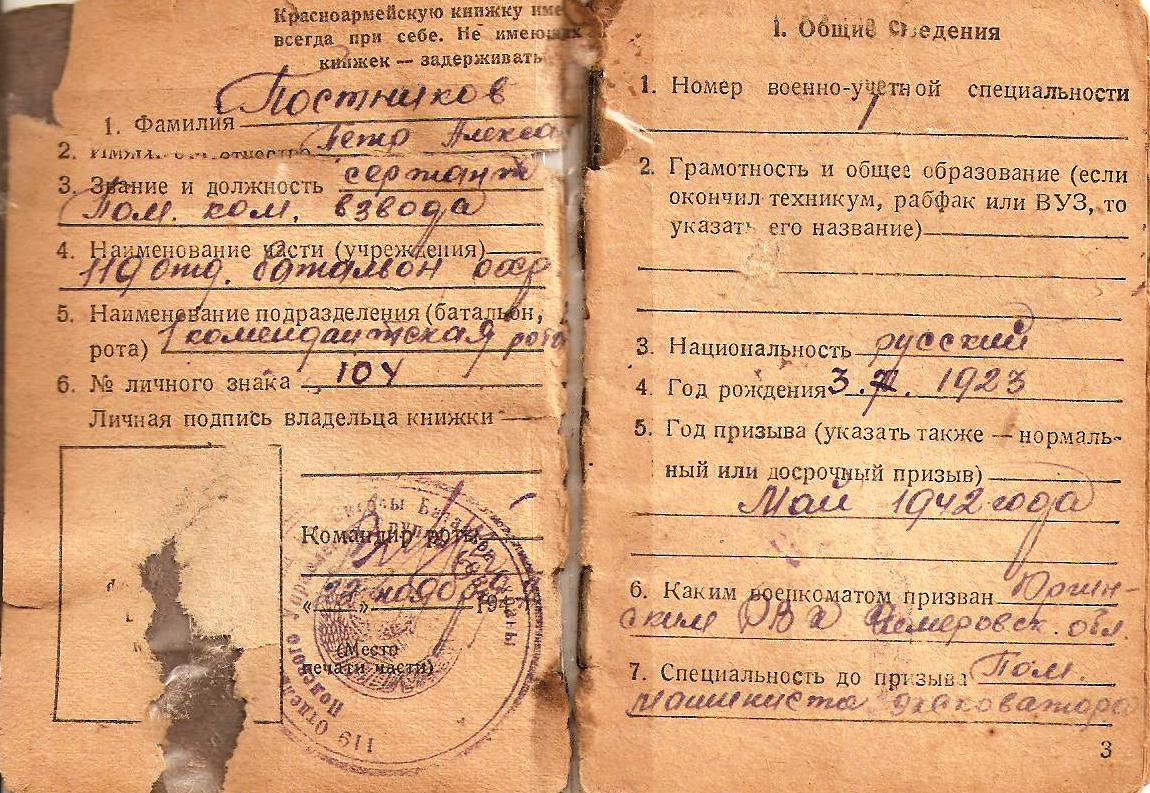 Красноармейскую книжку име
всегда при себе. Не имеющих
книжек — задерживать
1. Фамилия Постников
2. Имя и отчество Петр Алекса
3. Звание и должность сержант
Пом. ком. взвода
4. Наименование части (учреждения)
119 отд. батальон
5. Наименование подразделения (батальон,
рота) 1 комендантская рота
6. № личного знака 104
Личная подпись владельца книжки
Командир роты
«22» ноября 194
(Место
печати части)
119 Отдел
1. Общие сведения
1. Номер военно-учетной специальности
1
2. Грамотность и общее образование (если
окончил техникум, рабфак или ВУЗ, то
указать его название)
3. Национальность русский
4. Год рождения 3. 1923
5. Год призыва (указать также — нормаль-
ный или досрочный призыв)
Май 1942 года
6. Каким военкоматом призван Юргин-
ским РВК Кемеровск. обл.
7. Специальность до призыва Пом.
машиниста экскаватора
3